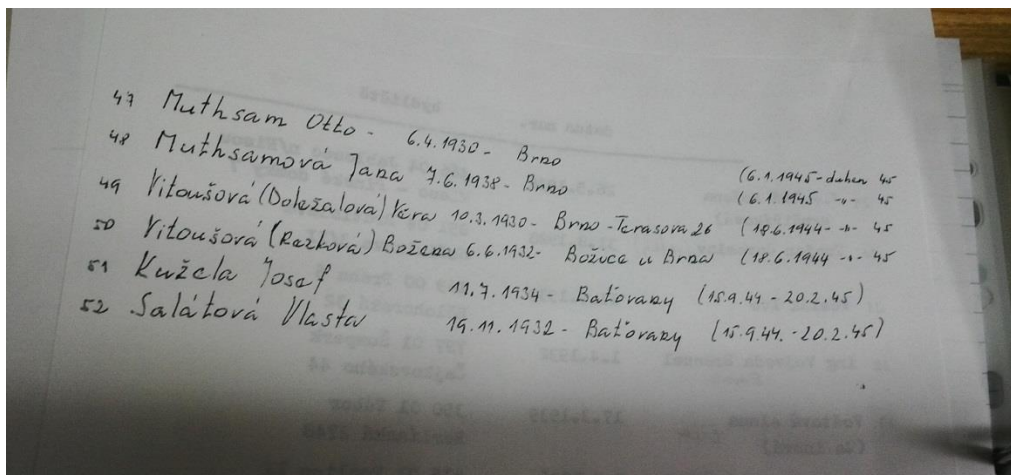 47 Muthsam Otto - 6.4.1930 - Brno
48 Muthsamová Jana 7.6.1938 - Brno (6.1.1945 - duben 45
49 Vitoušová (Doležalová) Věra 10.3.1930 - Brno - Terasova 26 (6.1.1945 -"- 45
50 Vitoušová (Rezková) Božena 6.6.1932 - Božice u Brna (18.6.1944 -"- 45
(18.6.1944 -"- 45
51 Kužela Josef 11.7.1934 - Baťovany (15.9.44. - 20.2.45)
52 Salátová Vlasta 19.11.1932 - Baťovany (15.9.44. - 20.2.45)